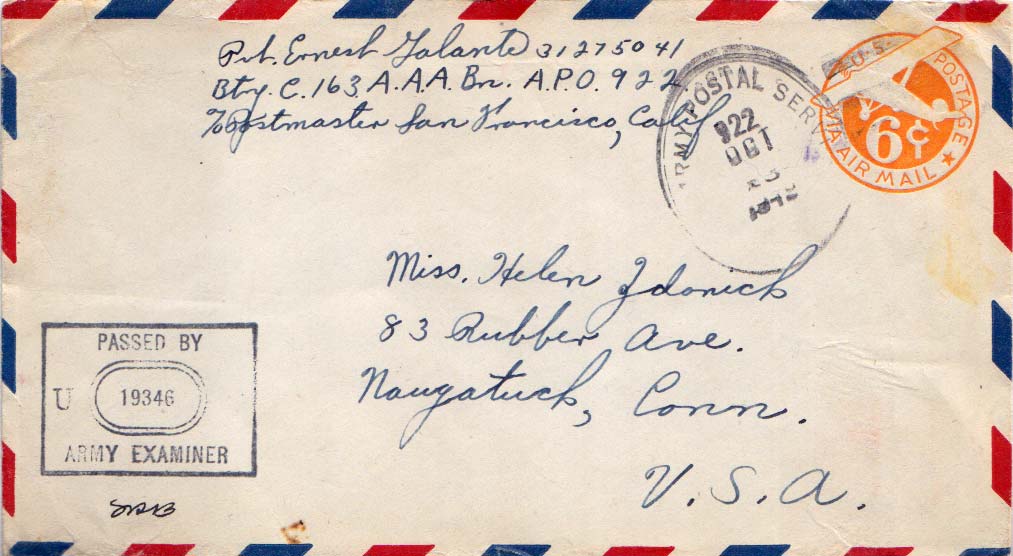 Pvt. Ernest Galante 31275041
Btry. C. 163 A.A.A. Bn. A.P.O. 922
℅ Postmaster San Francisco, Calif
ARMY POSTAL SERV
922
OCT
U.S. POSTAGE
6¢
VIA AIR MAIL
Miss. Helen Zdonick
83 Rubber Ave.
Naugatuck, Conn.
U.S.A.
PASSED BY
U 19346
ARMY EXAMINER